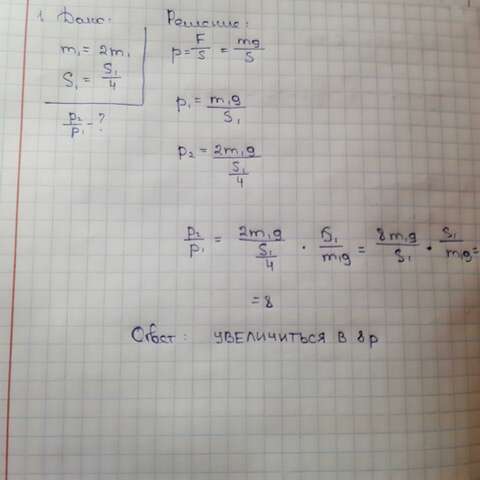 1. Дано:
m₁ = 2m₁
S₁ = S₁/4
p₂/p₁ - ?
Решение:
p = F/S = mg/S
p₁ = m₁g/S₁
p₂ = 2m₁g/(S₁/4)
p₂/p₁ = 2m₁g/(S₁/4) · S₁/m₁g = 8m₁g/S₁ · S₁/m₁g =
= 8
Ответ: УВЕЛИЧИТЬСЯ В 8 р